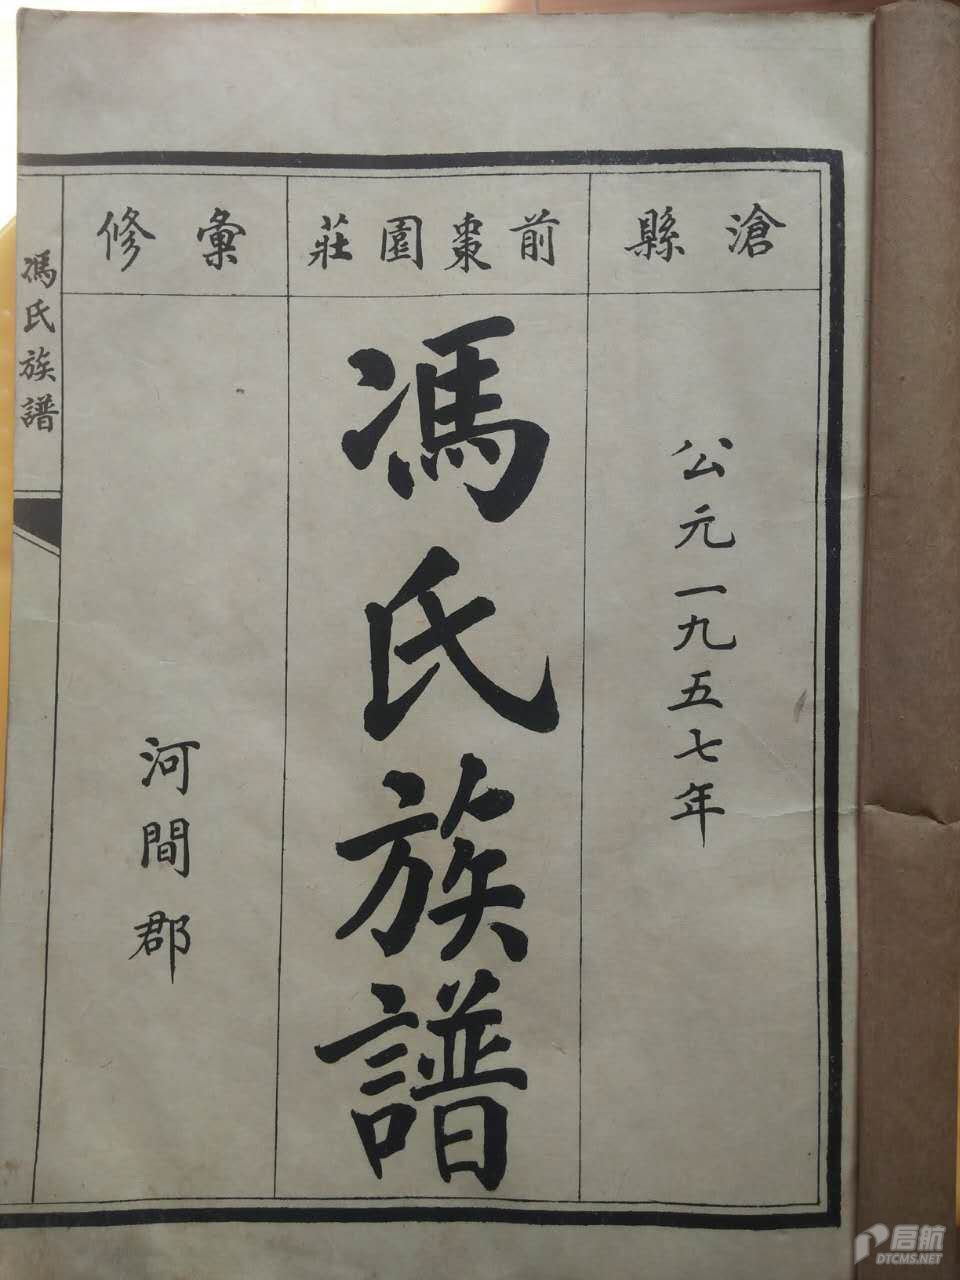 滄縣
前棗園莊
彙修
公元一九五七年
馮氏族譜
河間郡
馮氏族譜
启航
DTCMS.NET